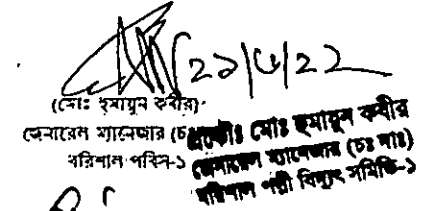 ২১/৬/২২
(মোঃ হুমায়ুন কবীর)
জেনারেল ম্যানেজার (চঃ
বরিশাল পবিস-১
প্রকৌঃ মোঃ হুমায়ুন কবীর
জেনারেল ম্যানেজার (চঃ দাঃ)
বরিশাল পল্লী বিদ্যুৎ সমিতি-১